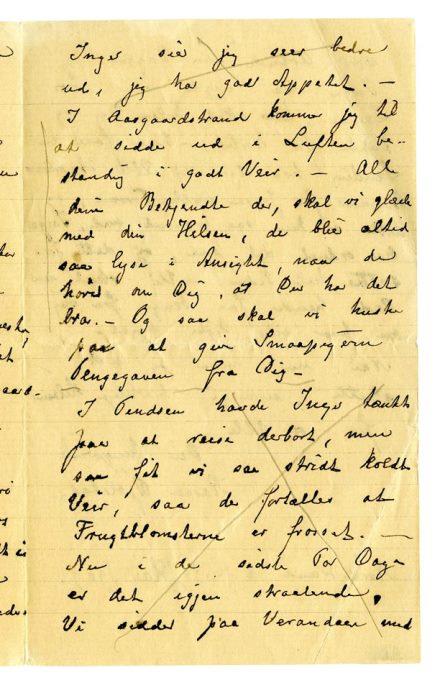 Inger siér jeg seer bedre
ud, jeg har god Appetet. —
I Aasgaardstrand kommer jeg til
at sidde ud i Luften be-
standig i godt Veir. — Alle
dem Bekjendte der, skal vi glæde
med din Hilsen, de blir altid
saa lyse i Ansigt, naar de
hører om Dig, at Du har det
bra. — Og saa skal vi huske
paa at give Smaapigerne
Pengegaven fra Dig —
I Pindsen havde Inger tænkt
paa at reise derbort, men
saa fik vi saa stridt koldt
Veir, saa de fortælles at
Frugtblomsterne er frosset. —
Nu i de sidste Par Dage
er det igjen straalende,
Vi sidder paa Verandaen med